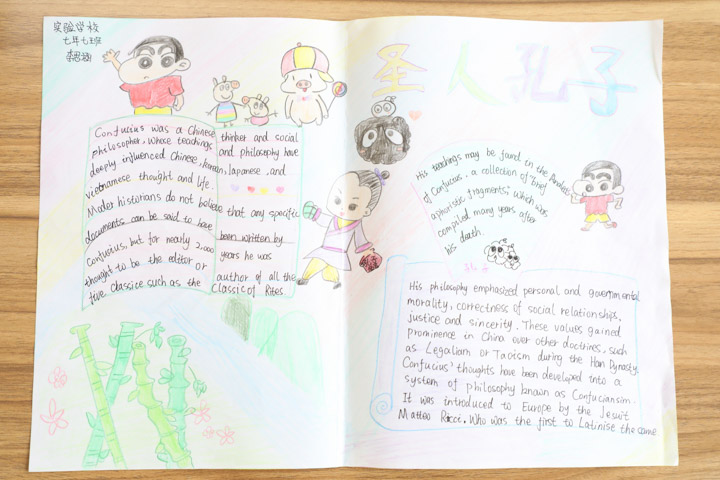 实验学校
七年七班
圣人孔子
Confucius was a Chinese thinker and social
philosopher, whose teachings and philosophy have
deeply influenced Chinese, korean, Japanese, and
vietnamese thought and life.
Moder historians do not believe that any specific
documents can be said to have been written by
Confucius, but for nearly 2,000 years he was
thought to be the editor or author of all the
five classice such as the Classic of Rites
His teachings may be found in the
of Confucius, a collection of "brief
aphoristic fragments", which was
compiled many years after
his death.
His philosophy emphasized personal and governmental
morality, correctness of social relationships,
justice and sincerity. These values gained
prominence in China over other doctrines, such
as Legalism or Taoism during the Han Dynasty.
Confucius' thoughts have been developed into a
system of philosophy known as Confuciansim.
It was introduced to Europe by the Jesuit
Matteo Ricce, Who was the first to Latinise the come